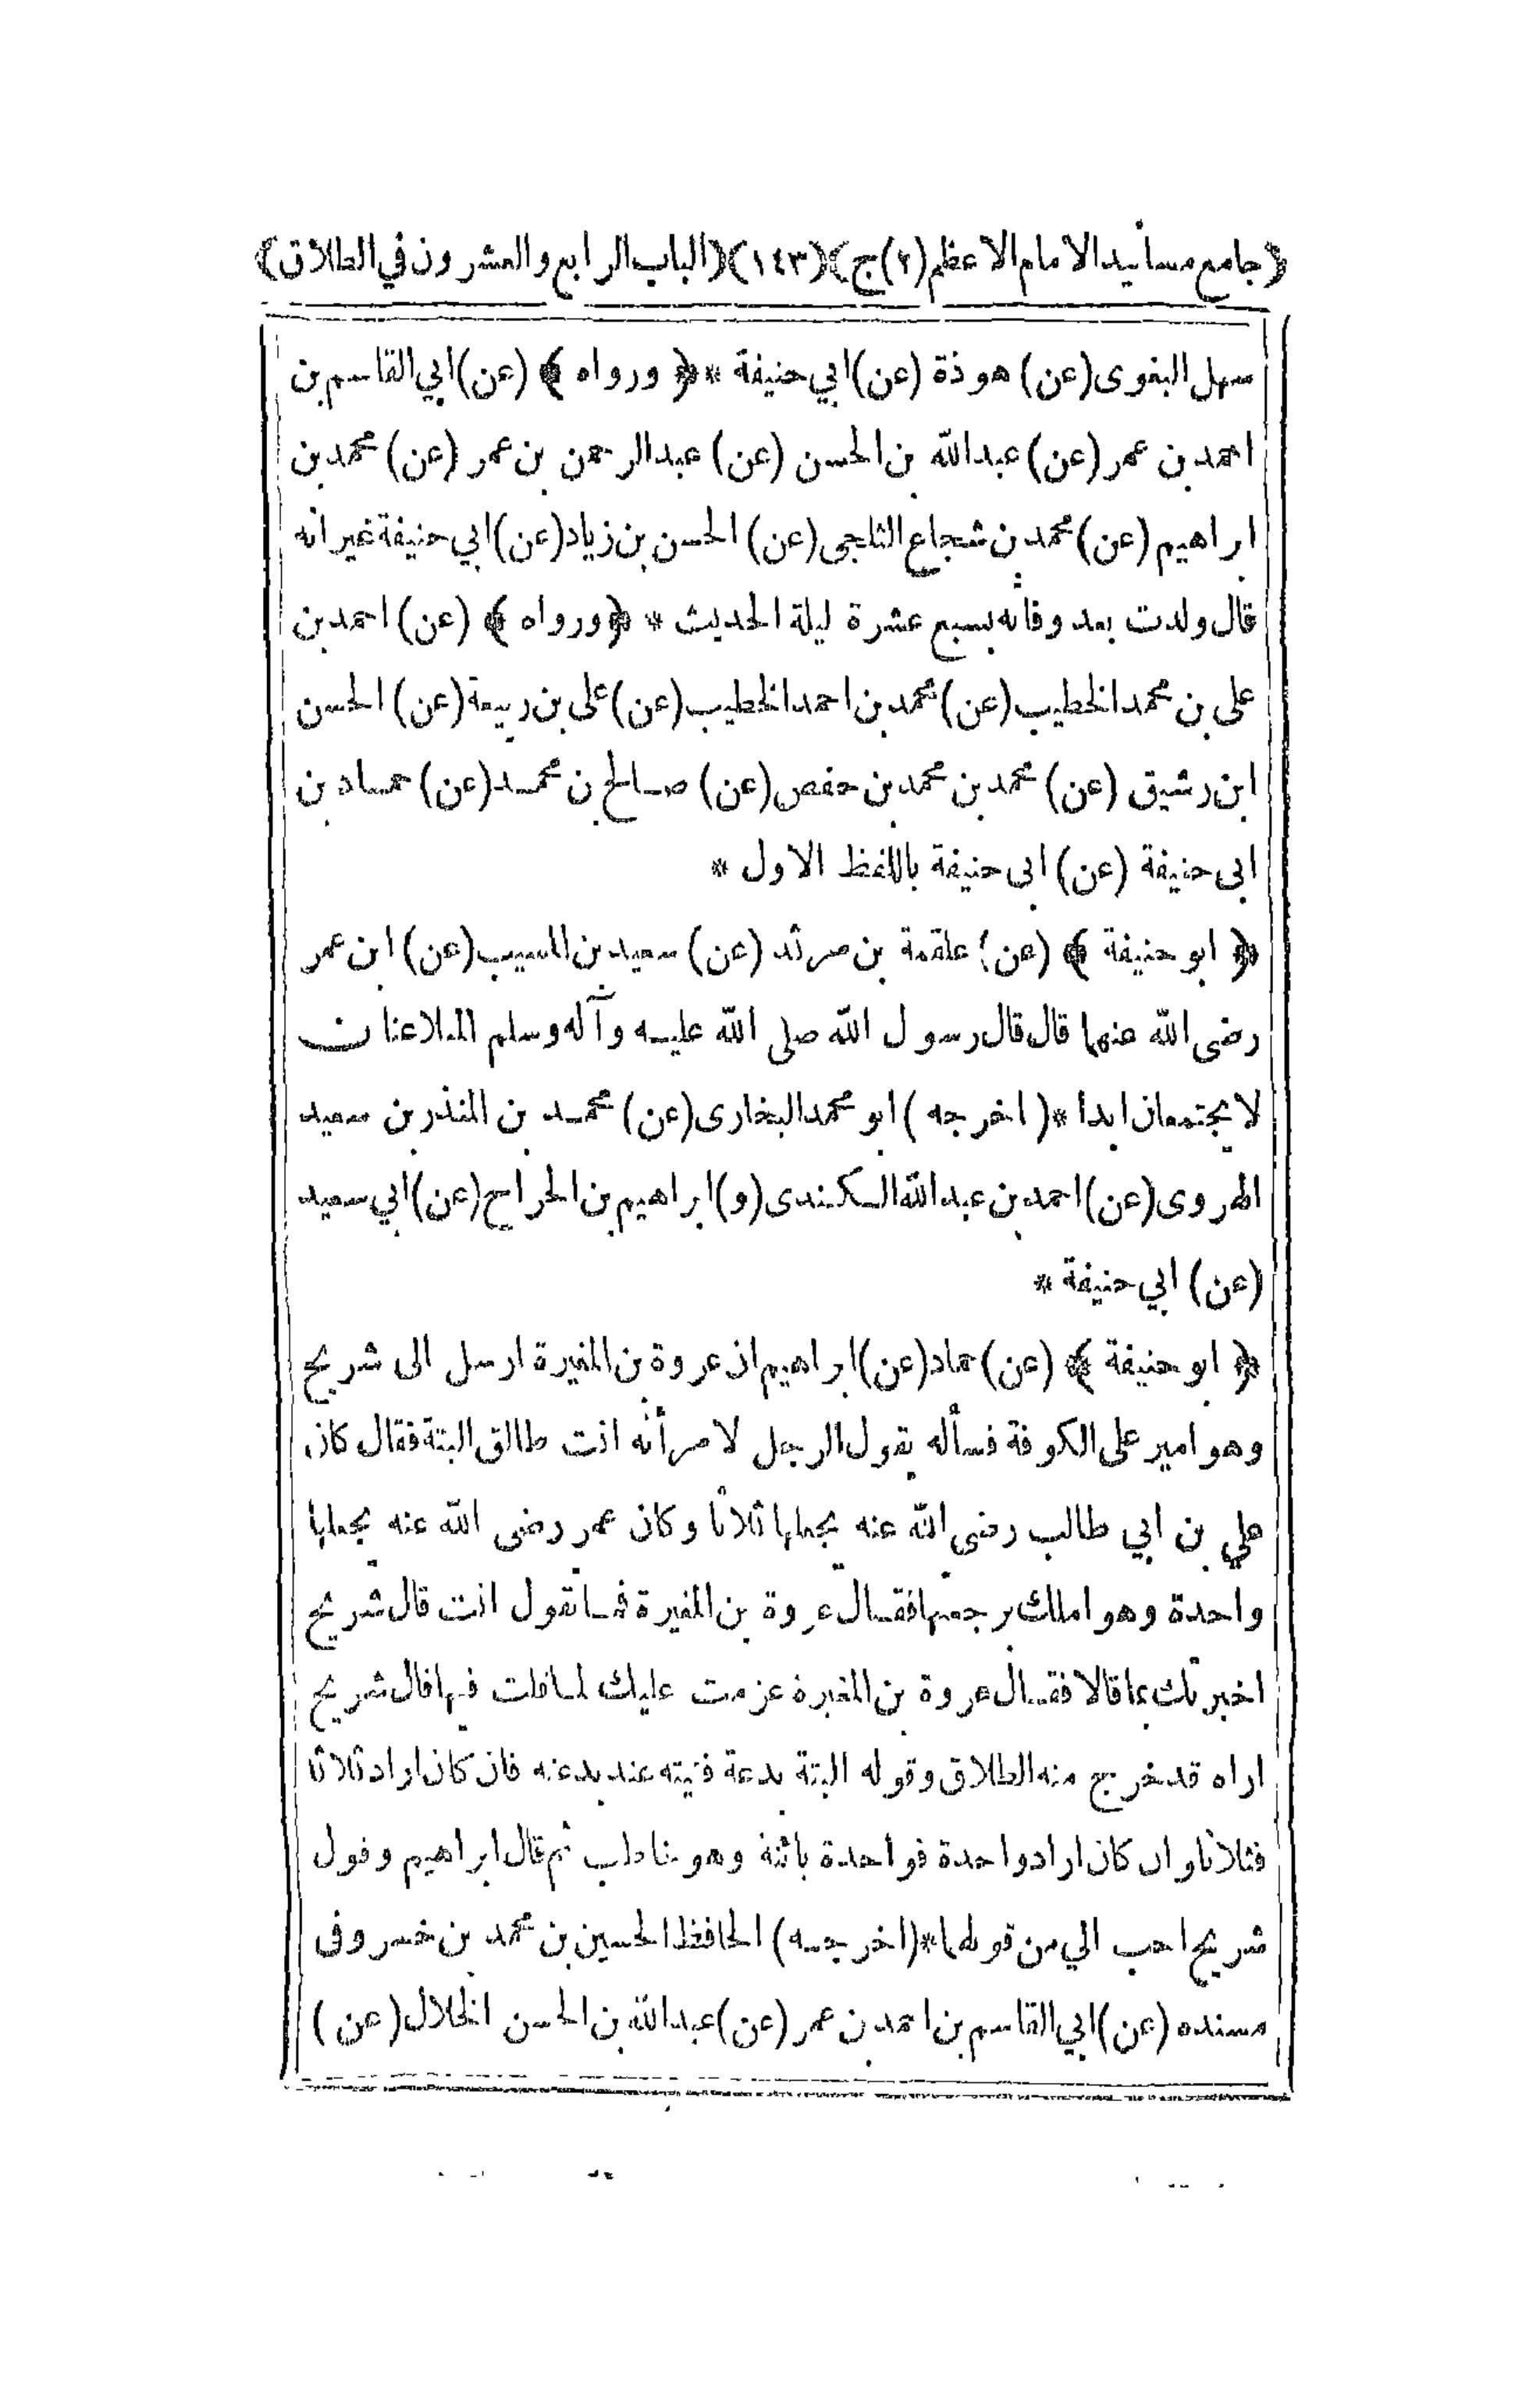 ﴿جامع مسانيد الامام الاعظم (٢) ج﴾ (١٤٣) ﴿الباب الرابع والعشرون في الطلاق﴾
سهل البغوى (عن) هوذة (عن) ابي حنيفة * ﴿ ورواه ﴾ (عن) ابي القاسم بن
احمد بن عمر (عن) عبد الله بن الحسن (عن) عبد الرحمن بن عمر (عن) محمد بن
ابراهيم (عن) محمد بن شجاع الثلجى (عن) الحسن بن زياد (عن) ابي حنيفة غير انه
قال ولدت بعد وفاته بسبع عشرة ليلة الحديث * ﴿ورواه ﴾ (عن) احمد بن
على بن محمد الخطيب (عن) محمد بن احمد الخطيب (عن) على بن ربيعة (عن) الحسن
ابن رشيق (عن) محمد بن محمد بن حفص (عن) صالح بن محمد (عن) حماد بن
ابى حنيفة (عن) ابى حنيفة باللفظ الاول *
﴿ ابو حنيفة ﴾ (عن) علقمة بن مرثد (عن) سعيد بن المسيب (عن) ابن عمر
رضى الله عنهما قال قال رسول الله صلى الله عليه وآله وسلم المتلاعنان
لا يجتمعان ابدا * (اخرجه) ابو محمد البخارى (عن) محمد بن المنذر بن سعيد
الهروى (عن) احمد بن عبد الله الكندى (و) ابراهيم بن الجراح (عن) ابي سعيد
(عن) ابي حنيفة *
﴿ ابو حنيفة ﴾ (عن) حماد (عن) ابراهيم ان عروة بن المغيرة ارسل الى شريح
وهو امير على الكوفة فسأله يقول الرجل لامرأته انت طالق البتة فقال كان
علي بن ابي طالب رضى الله عنه يجعلها ثلاثا وكان عمر رضى الله عنه يجعلها
واحدة وهو املك برجعتها فقال عروة بن المغيرة فما تقول انت قال شريح
اخبرتك بما قالا فقال عروة بن المغيرة عزمت عليك لما قلت فيها قال شريح
اراه قد خرج منه الطلاق وقوله البتة بدعة فنيته عند بدعته فان كان اراد ثلاثا
فثلاثا وان كان اراد واحدة فواحدة بائنة وهو خاطب ثم قال ابراهيم وقول
شريح احب الي من قولهما * (اخرجه) الحافظ الحسين بن محمد بن خسرو فى
مسنده (عن) ابي القاسم بن احمد بن عمر (عن) عبد الله بن الحسن الخلال (عن)